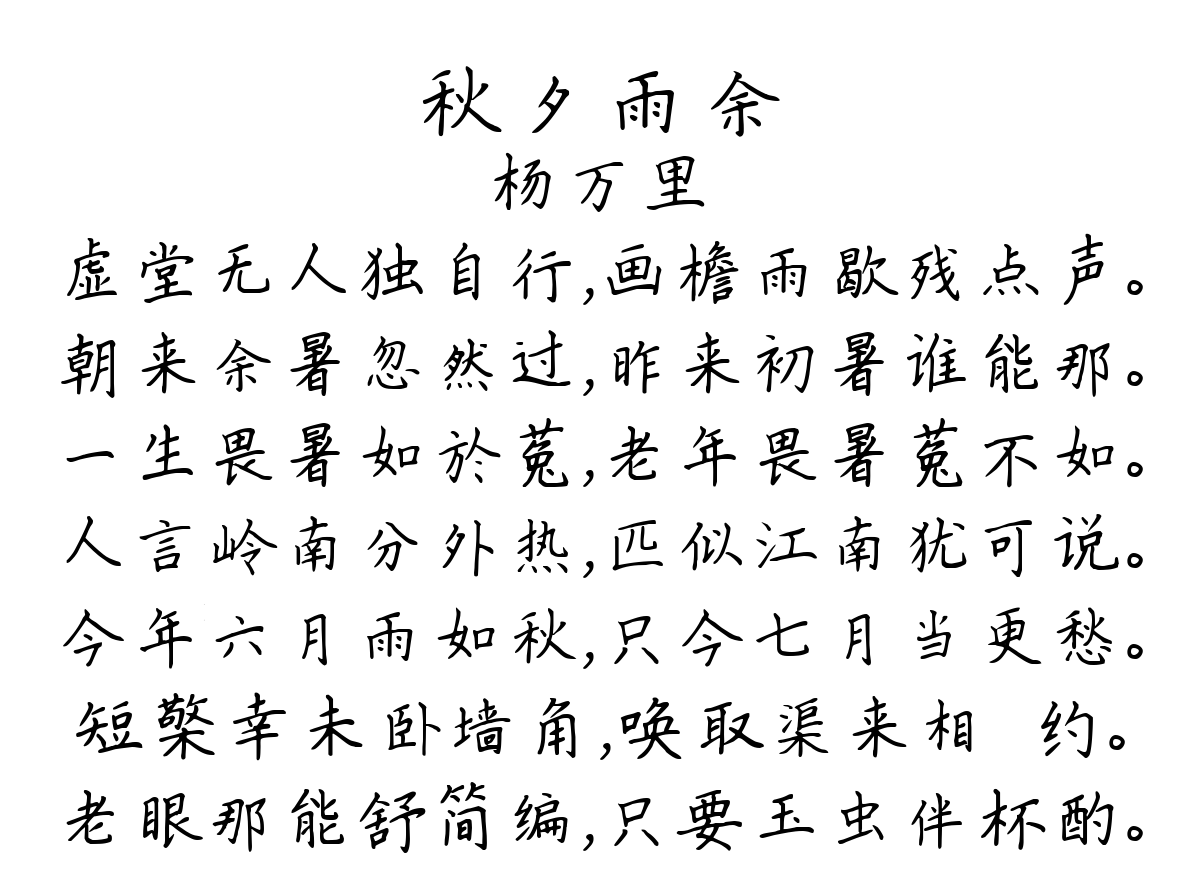 秋夕雨余
杨万里
虚堂无人独自行,画檐雨歇残点声。
朝来余暑忽然过,昨来初暑谁能那。
一生畏暑如於菟,老年畏暑菟不如。
人言岭南分外热,匹似江南犹可说。
今年六月雨如秋,只今七月当更愁。
短檠幸未卧墙角,唤取渠来相 约。
老眼那能舒简编,只要玉虫伴杯酌。